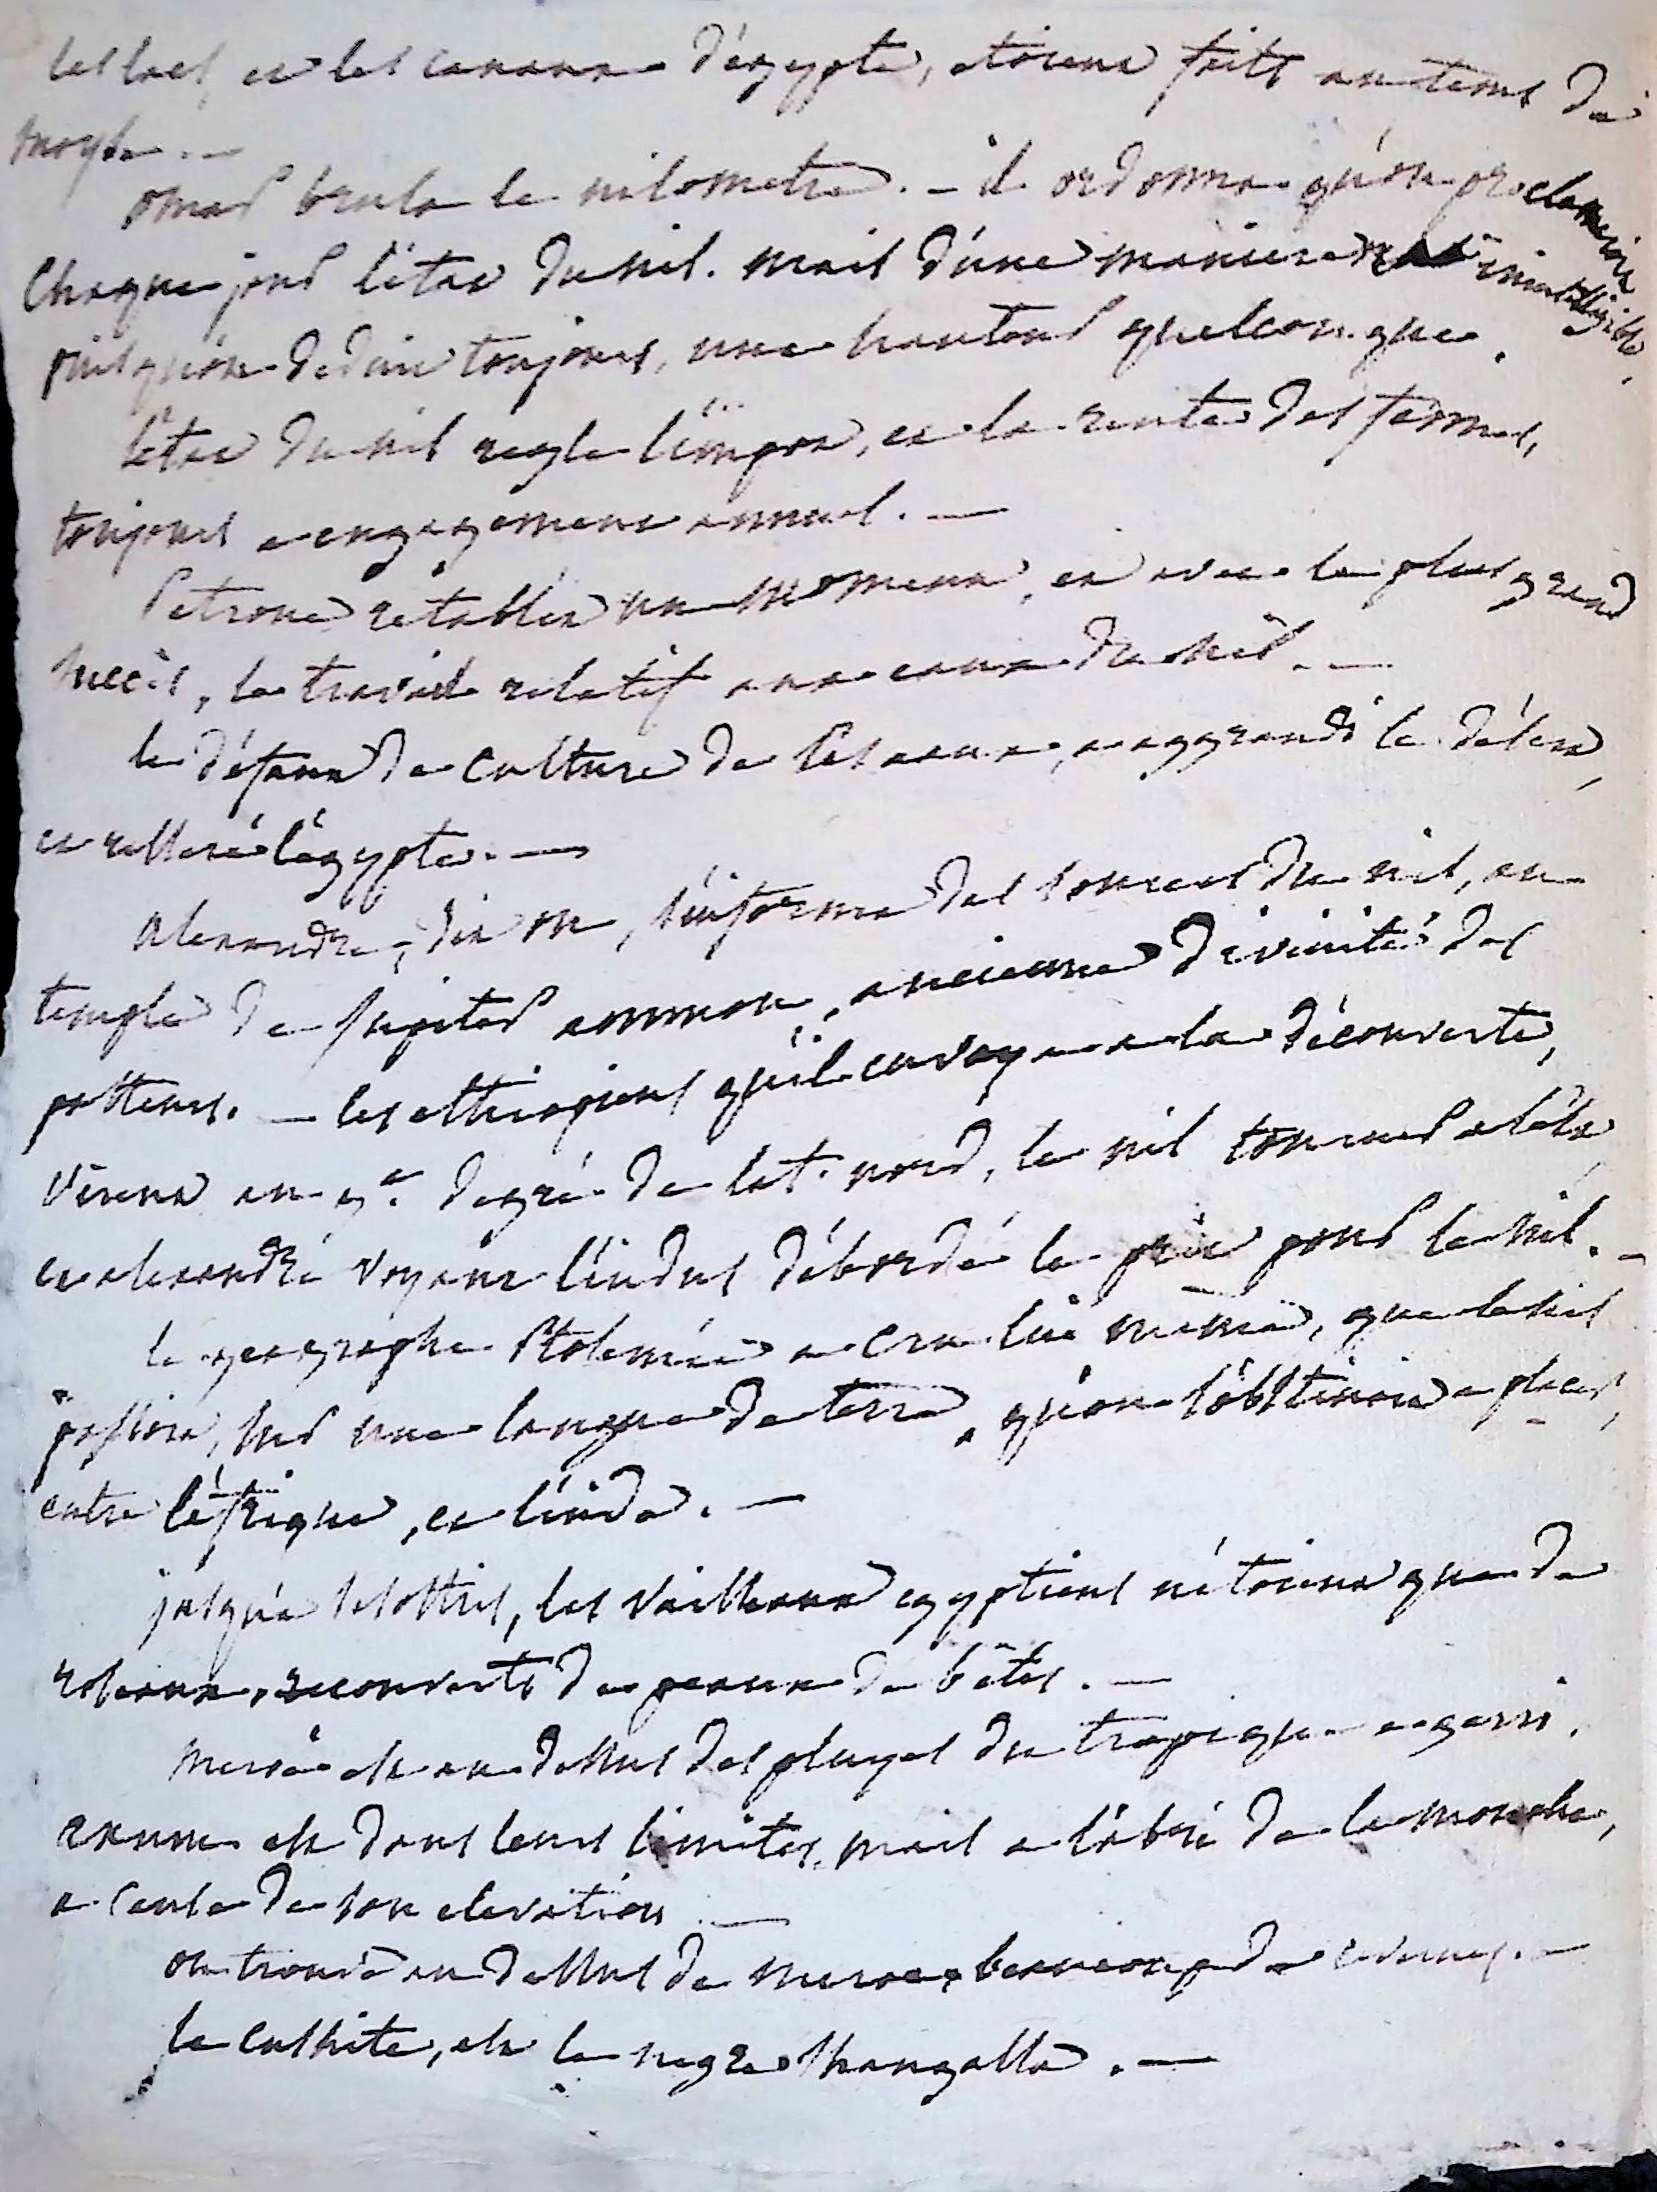 les lacs, et les canaux d'égypte, étoient faits au tems de
moyse. —
omar brula le nilometre. — il ordonna qu'on proclameroit
chaque jour l'état du nil. mais d'une maniere inintelligible,
puisqu'on dedui toujours, une hauteur quelconque.
l'état du nil regle l'impot, et la rente des fermes,
toujours a engagement annuel. —
Petrone rétablit un moment, et avec le plus grand
succès, le travail relatif aux eaux du nil. —
le défaut de culture de ses eaux, a aggrandi le désert,
et resserré l'égypte. —
alexandre, dit on, s'informa des sources du nil, au
temple de jupiter ammon, ancienne divinité des
pasteurs. — les ethiopiens qu'il envoya a la découverte,
virent au 9e. degré de lat. nord, le nil tourner a l'est
et alexandre voyant l'indus débordé le prit pour le nil. —
le geographe Ptolemée a cru lui même, que le nil
passoit, sur une langue de terre, qu'on s'obstinoit a placer,
entre l'afrique, et l'inde. —
jusqu'a sesostris, les vaisseaux egyptiens n'étoient que de
roseaux, recouverts de peaux de bêtes. —
meroë est au dessus des pluyes du tropique a gerri.
axum est dans leurs limites, mais a l'abri de la mouche,
a cause de son elevation —
on trouve au dessus de meroe, beaucoup de cavernes. —
le cushite, est le negre shangalla. —